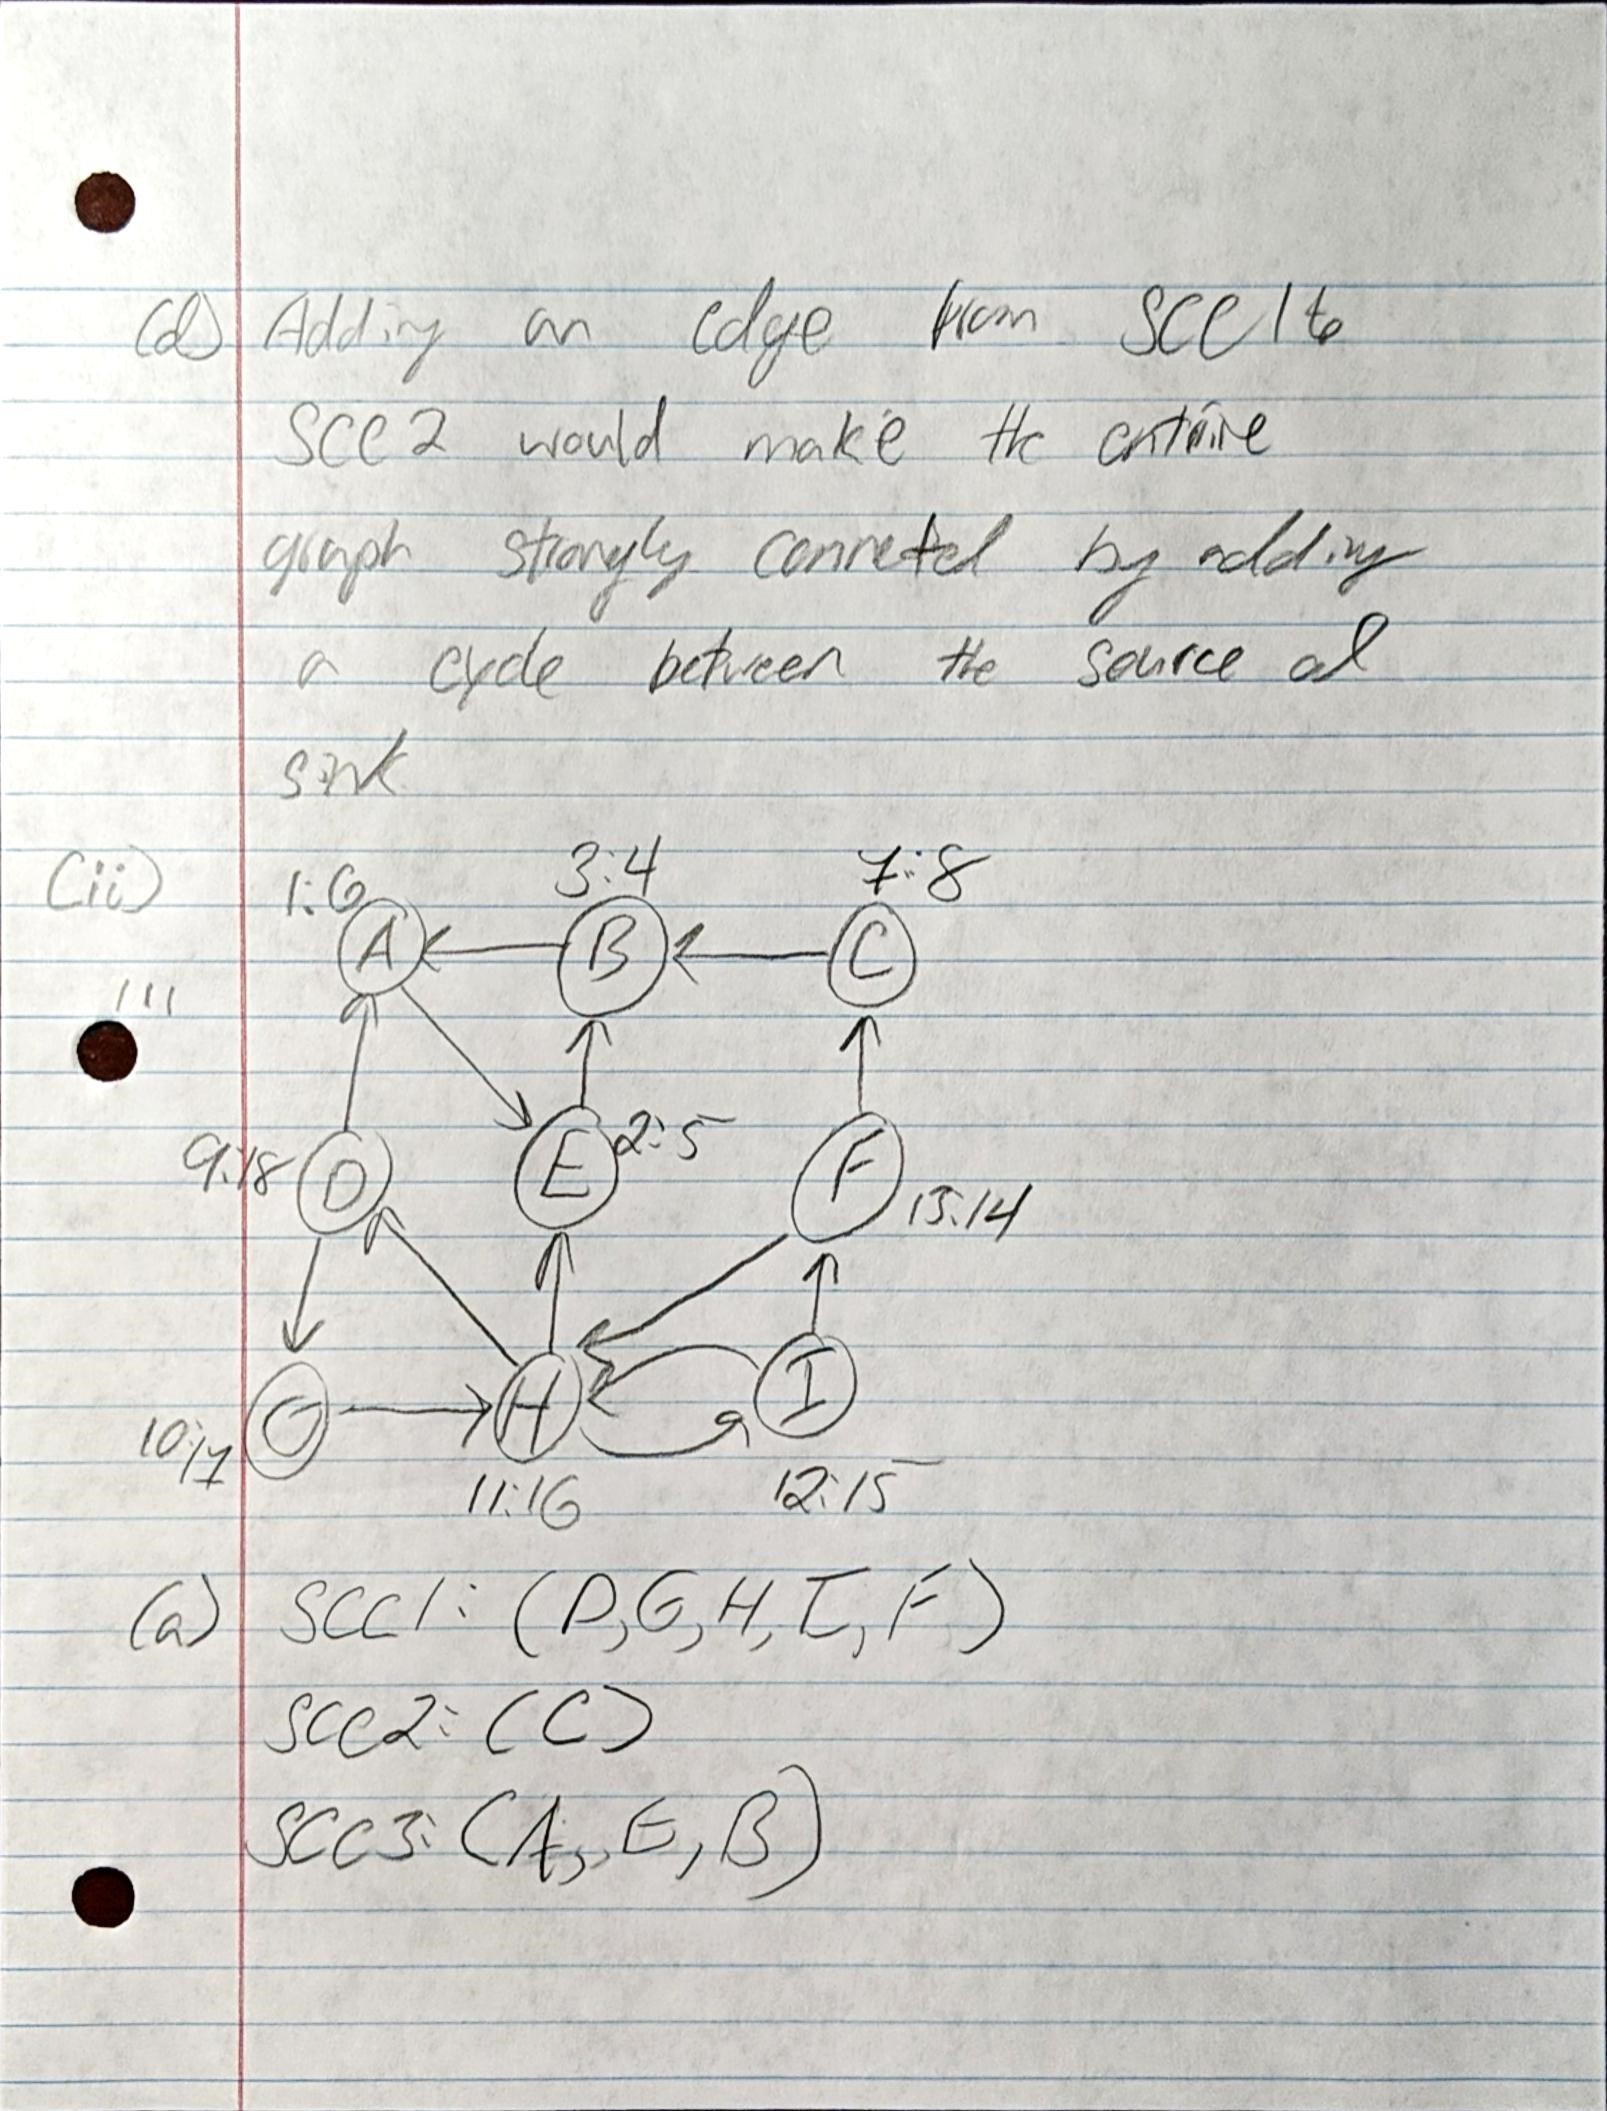 (d) Adding an edge from SCC1 to
SCC2 would make the entire
graph strongly connected by adding
a cycle between the source
sink
(ii) 1:6 3:4 7:8
A B C
111
9:18 D E 2:5 F 13:14
G H I
10:17
11:16 12:15
(a) SCC1: (D,G,H,I,F)
SCC2: (C)
SCC3: (A,,E,B)